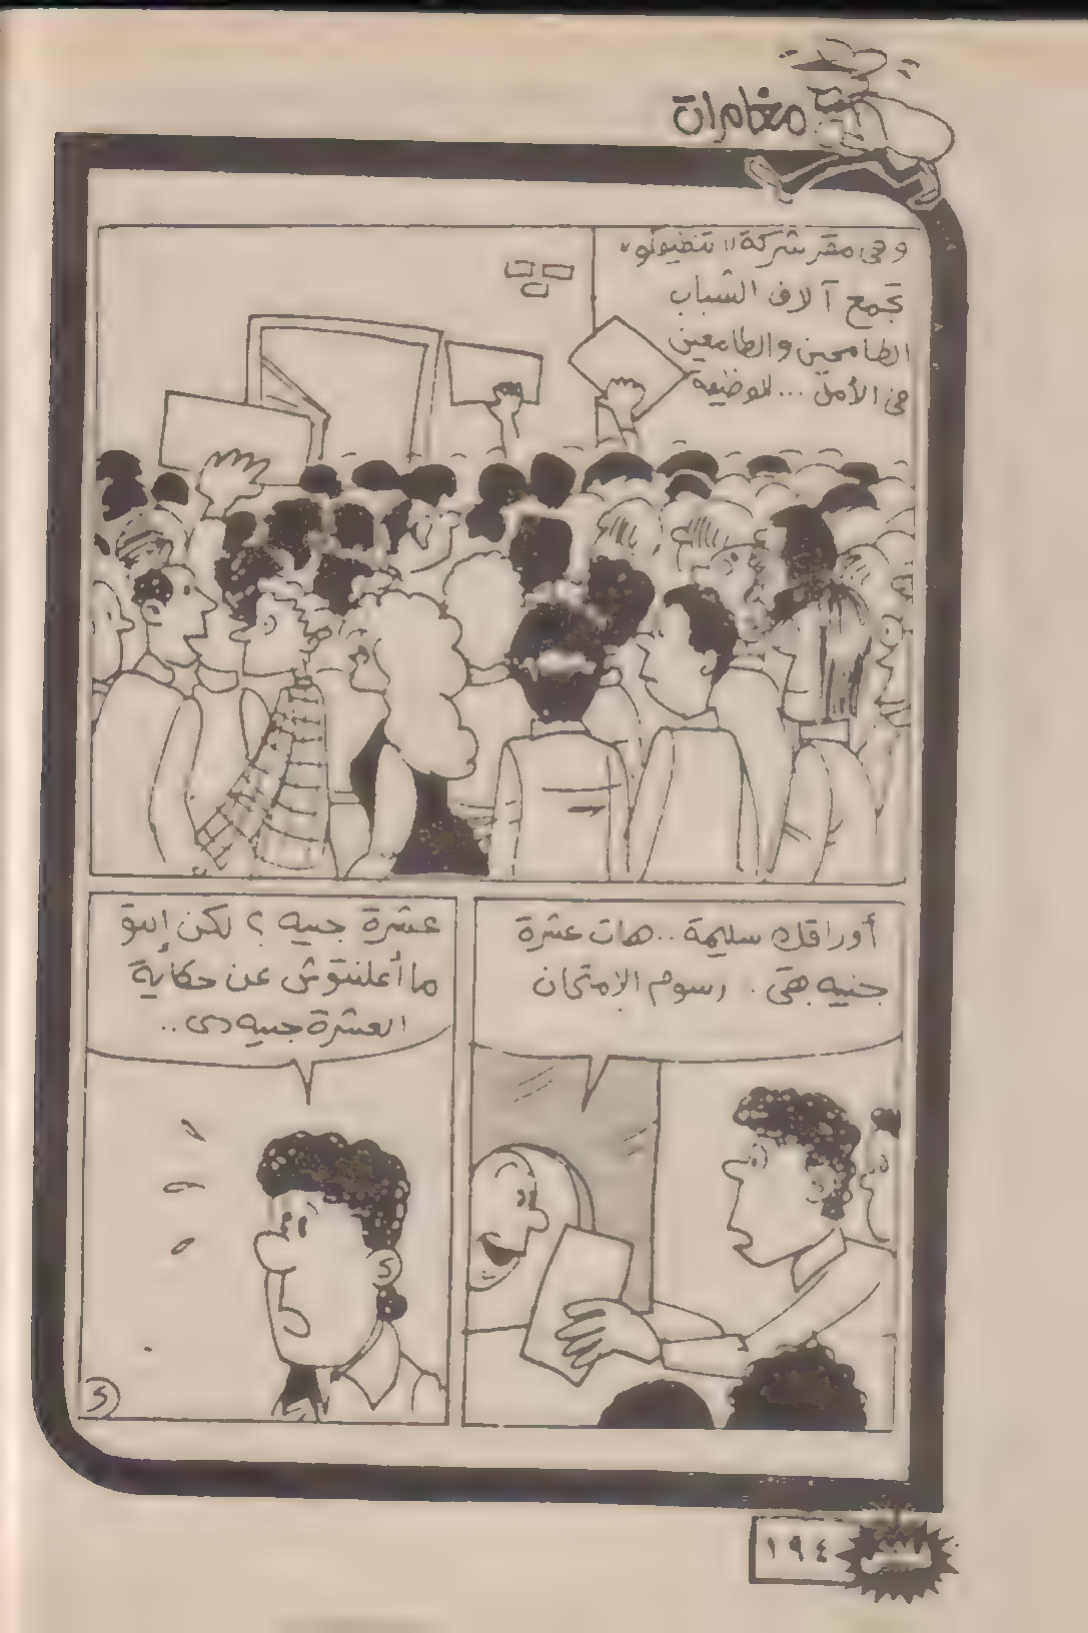 مغامرات
وفى مقر شركة « تنضيفكو »
تجمع آلاف الشباب
الطامحين والطامعين
فى الأمل ... للوظيفة
أوراقك سليمة .. هات عشرة
جنيه بقى . رسوم الامتحان
عشرة جنيه ؟ لكن إنتو
ما أعلنتوش عن حكاية
العشرة جنيه دى ..
٢
١٩٤